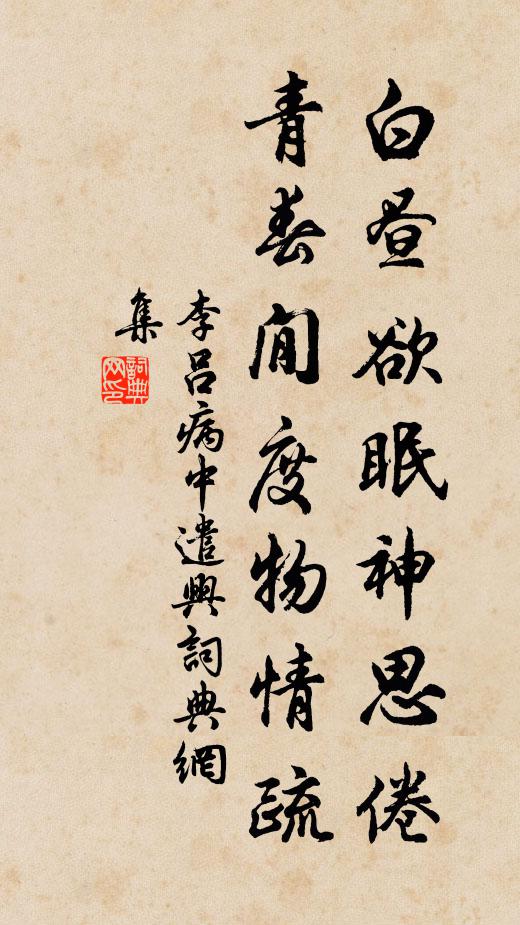 白昼欲眠神思倦
青春闲度物情疏
李吕病中遣興詞典網
集
詞典網印